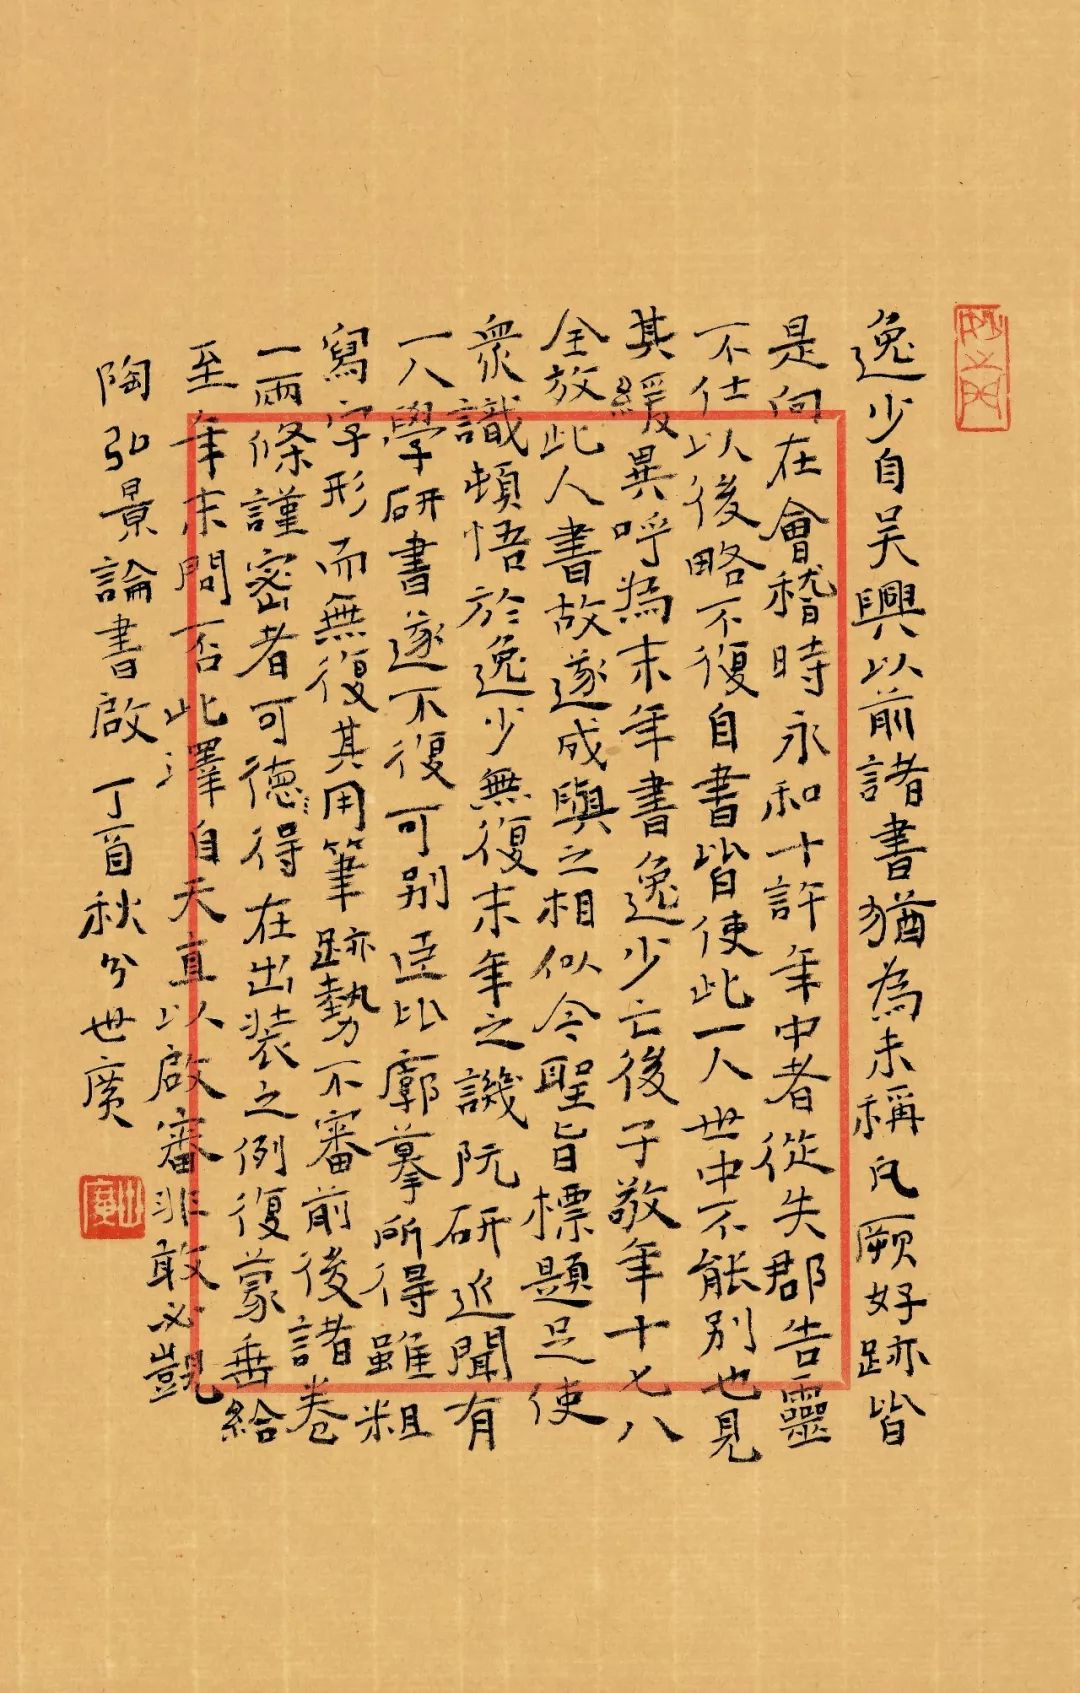 妙之門
逸少自吳興以前諸書猶為未稱凡厥好跡皆
是向在會稽時永和十許年中者從失郡告靈
不仕以後略不復自書皆使此一人世中不能別也見
其緩異呼為末年書逸少亡後子敬年十七八
全放此人書故遂成與之相似今聖旨標題足使
衆識頓悟於逸少無復末年之譏阮研近聞有
一人學研書遂不復可别臣比廓摹所得雖粗
寫字形而無復其用筆跡勢不審前後諸卷
一兩條謹密者可德得在出装之例復蒙垂給
至年末間否此澤自天直以啟審非敢必覬
陶弘景論書啟丁酋秋分世廣
世廣